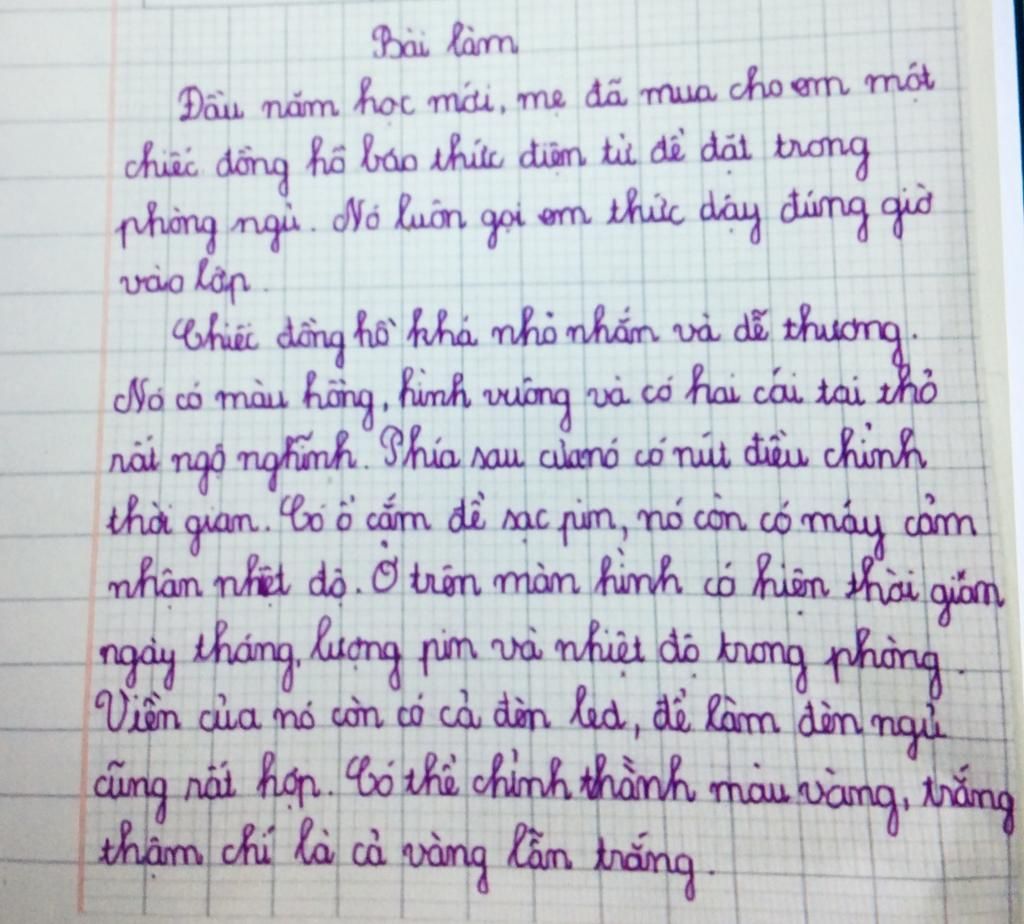 Bài làm
Đầu năm học mới, mẹ đã mua cho em một
chiếc đồng hồ báo thức điện tử để đặt trong
phòng ngủ. Nó luôn gọi em thức dậy đúng giờ
vào lớp.
Chiếc đồng hồ khá nhỏ nhắn và dễ thương.
Nó có màu hồng, hình vuông và có hai cái tai thỏ
rất ngộ nghĩnh. Phía sau của nó có nút điều chỉnh
thời gian. Có ổ cắm để sạc pin, nó còn có máy cảm
nhận nhiệt độ. Ở trên màn hình có hiện thời gian
ngày tháng, lượng pin và nhiệt độ trong phòng.
Viền của nó còn có cả đèn led, để làm đèn ngủ
cũng rất hợp. Có thể chỉnh thành màu vàng, trắng
thậm chí là cả vàng lẫn trắng.